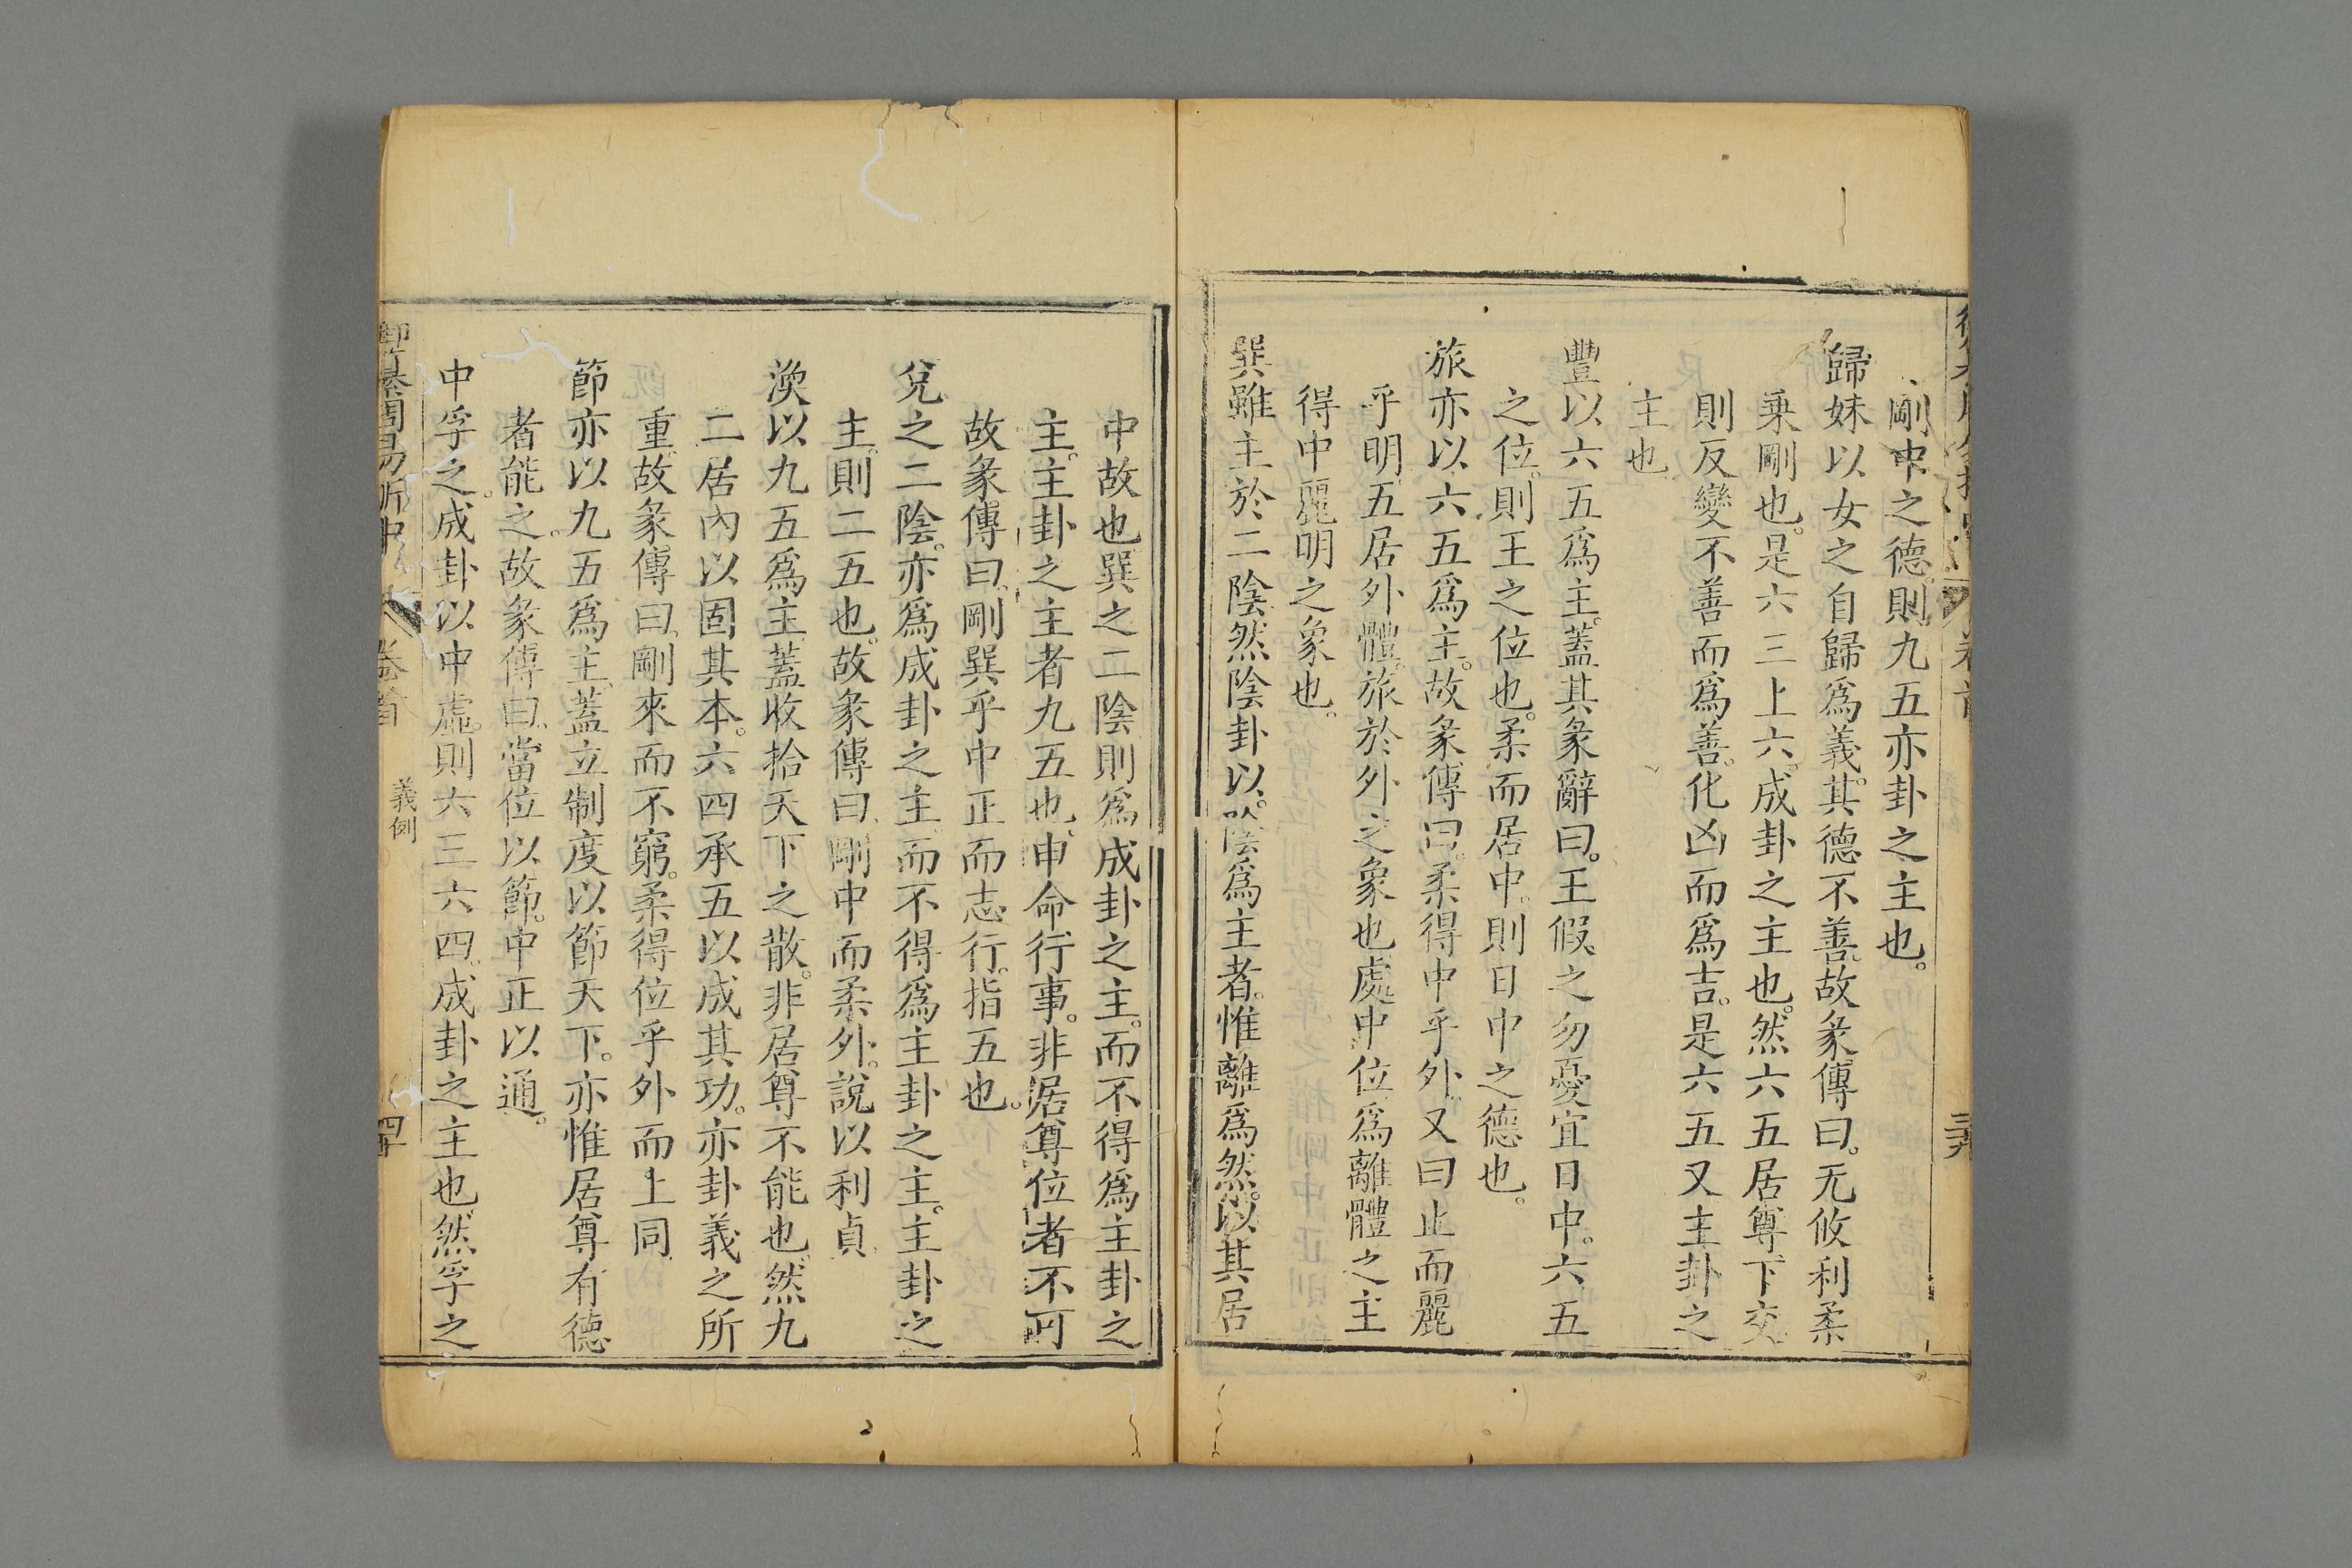 剛中之德則九五亦卦之主也。
歸妹以女之自歸爲義。其德不善。故彖傳曰。无攸利柔
乗剛也。是六三上六。成卦之主也。然六五居尊下交。
則反變不善而爲善。化凶而爲吉。是六五又主卦之
主也
豐以六五爲主。蓋其彖辭曰。王假之勿憂宜日中。六五
之位。則王之位也。柔而居中。則日中之德也。
旅亦以六五爲主。故彖傳曰。柔得中乎外。又曰止而麗
乎明。五居外體。旅於外之象也。處中位爲離體之主
得中麗明之象也。
巽雖主於二陰。然陰卦以陰爲主者。惟離爲然。以其居
中故也巽之二陰則爲成卦之主。而不得爲主卦之
主。主卦之主者九五也。申命行事。非居尊位者不可
故彖傳曰。剛巽乎中正而志行。指五也。
兌之二陰。亦爲成卦之主。而不得爲主卦之主。主卦之
主。則二五也。故彖傳曰。剛中而柔外。說以利貞
渙以九五爲主。蓋收拾天下之散。非居尊不能也。然九
二居內以固其本。六四承五以成其功。亦卦義之所
重。故彖傳曰。剛來而不窮。柔得位乎外而上同
節亦以九五爲主。蓋立制度以節天下。亦惟居尊有德
者能之。故彖傳曰。當位以節。中正以通。
中孚之成卦以中虛。則六三六四。成卦之主也。然孚之
御纂周易折中
卷首
義例
四十
三十九